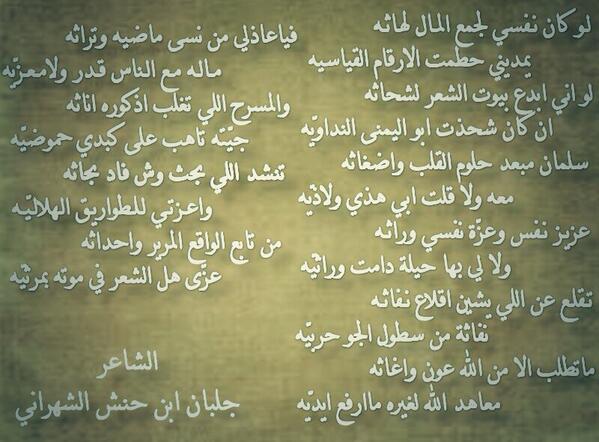 لو كان نفسي لجمع المال لهاثه
يمديني حطمت الارقام القياسيه
لو اني ابدع بيوت الشعر لشحاثه
ان كان شحذت ابو اليمنى النداويّه
سلمان مبعد حلوم القلب واضغاثه
معه ولا قلت ابي هذي ولاذيّه
عزيز نفس وعزّة نفسي وراثه
ولا لي بها حيلة دامت وراثيّه
تقلع عن اللي يشين اقلاع نفاثه
نفاثة من سطول الجو حربيّه
ماتطلب الا من الله عون واغاثه
معاهد الله لغيره ماارفع ايديّه
فياعاذلي من نسى ماضيه وتراثه
ماله مع الناس قدر ولامعزيّه
والمسرح اللي تغلب اذكوره اناثه
جيّته تاهب على كبدي حموضيّه
تنشد اللي بحث وش فاد بحاثه
واعزتي للطواريق الهلاليّه
من تابع الواقع المرير واحداثه
عزّى هل الشعر في موته بمرثيّه
الشاعر
جلبان ابن حنش الشهراني